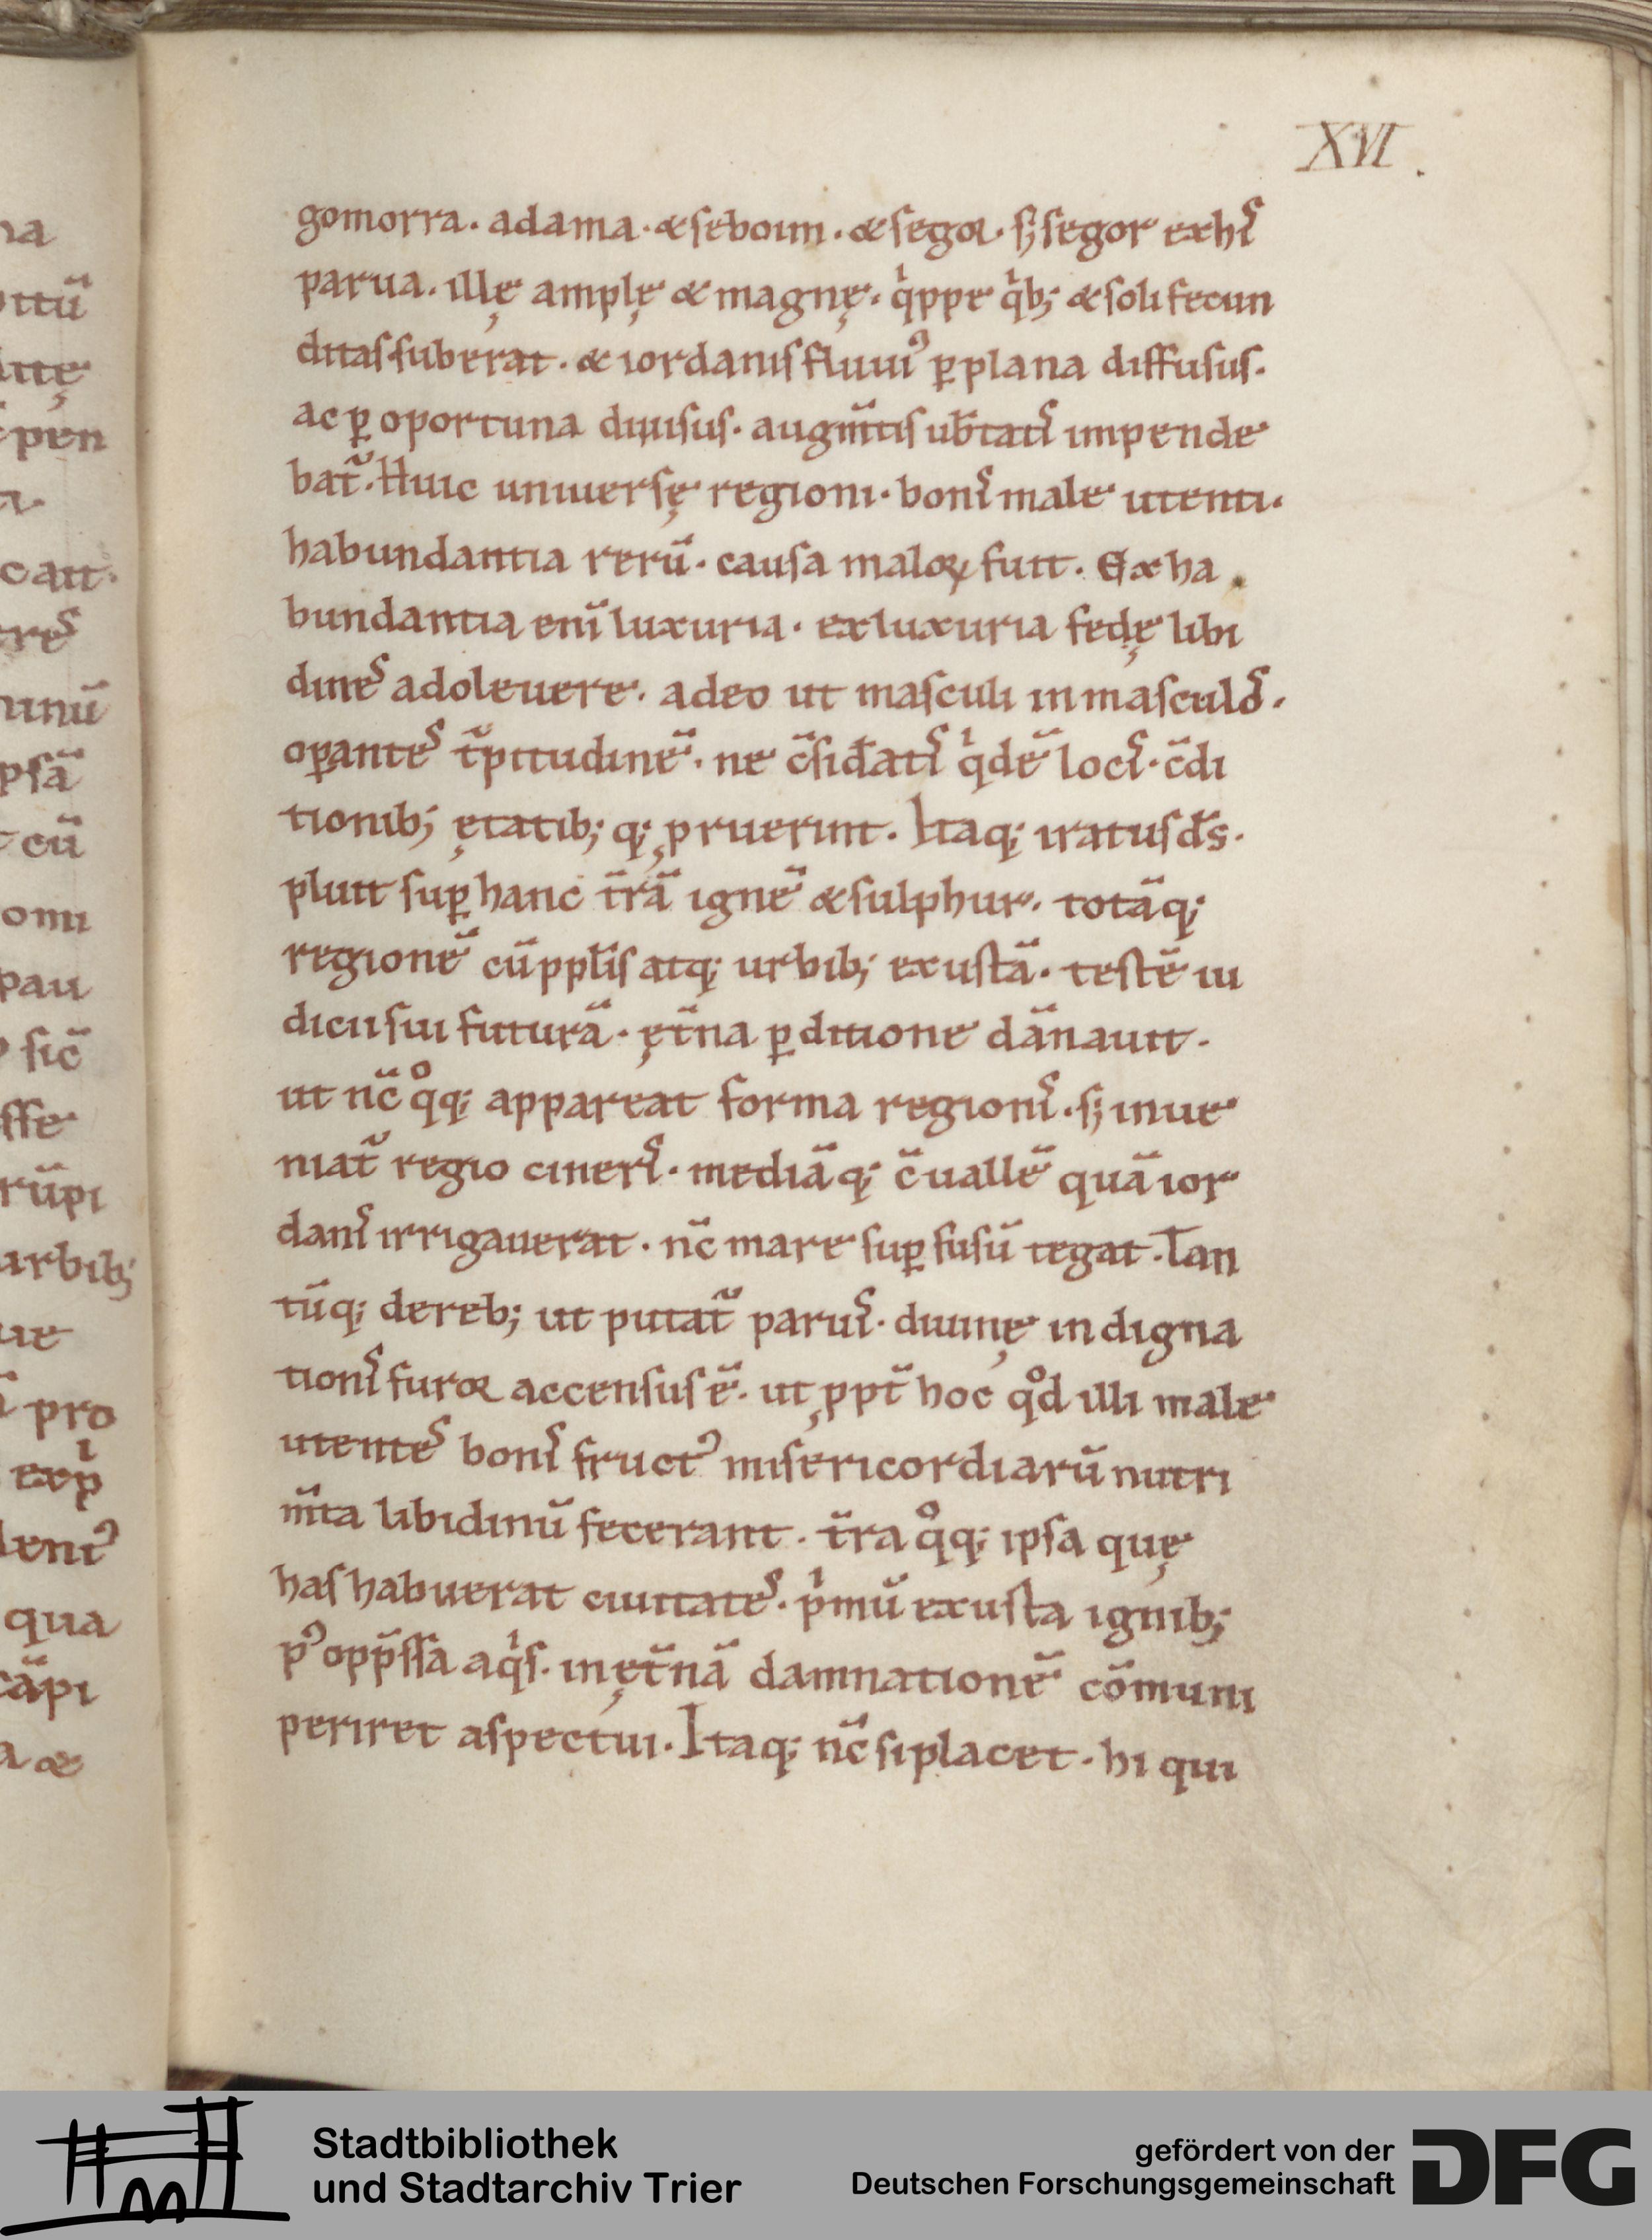 XVI.
gomorra. adama. & seboim. & segor. s; segor exhis
parua. illę amplę & magnę. qͥppe qͥb; & soli fecun
ditas suberat. & iordanis fluuiꝰ ꝑ plana diffusus.
ac ꝑ oportuna diuisus. augm̄tis ub̄tatis impende
bat᷑. Huic uniuersę regioni. bonis male utenti.
habundantia rerū. causa maloꝝ fuit. Ex ha
bundantia eni̅ luxuria. ex luxuria fedę libi
dines adoleuere. adeo ut masculi in masculos.
oꝑantes t᷑pitudinē. ne c̄sid̄atis qͥdē locis. c̄di
tionib; ętatib; q; ꝓruerint. Itaq; iratus d̄s.
pluit suꝑ hanc t̄rā ignē & sulphur. totāq;
regionē cū ppl̄is atq; urbib; exustā. testē iu
dicii sui futurā. ęt̄na ꝑditione dānauit.
ut nc̄ qͦq; appareat forma regionis. s; inue
niat᷑ regio cineris. mediāq; c̄uallē quā ior
danis irrigauerat. nc̄ mare suꝑfusū tegat. Tan
tūq; de reb; ut putat᷑ paruis. diuinę indigna
tionis furor accensus ē. ut ꝓpt̄ hoc qͦd illi male
utentes bonis fructꝰ misericordiarū nutri
m̄ta libidinū fecerant. t̄ra qͦq; ipsa quę
has habuerat ciuitates. pͥmū exusta ignib;
pꝰ opp̄ssa aqͥs. in ęt̄nā damnationē cōmuni
periret aspectui. Itaq; nc̄ si placet. hi qui
Stadtbibliothek
und Stadtarchiv Trier
gefördert von der
Deutschen Forschungsgemeinschaft
DFG